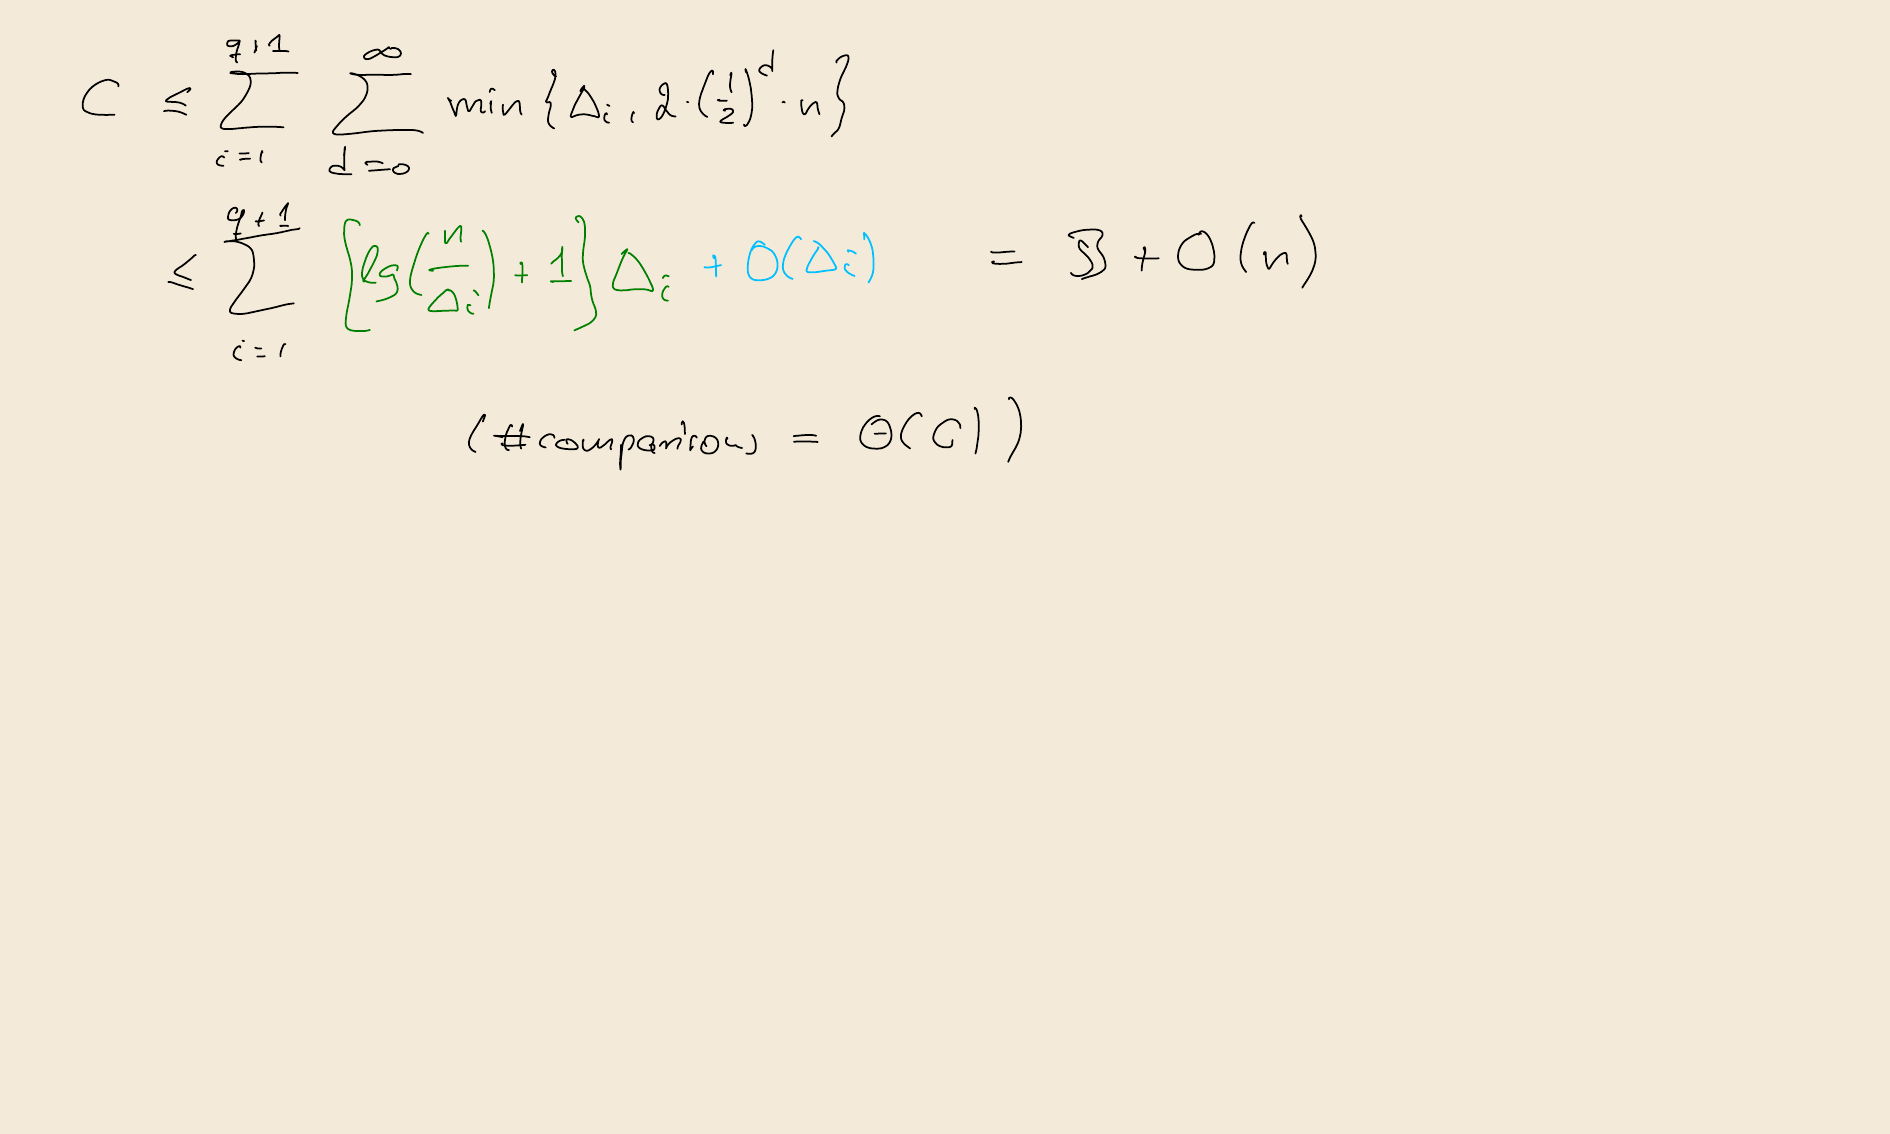 C ≤ \sum_{i=1}^{q+1} \sum_{d=0}^{∞} min {Δ_i, 2·(1/2)^d · n}
≤ \sum_{i=1}^{q+1} {lg(n/Δ_i) + 1} Δ_i + O(Δ_i) = B + O(n)
(#comparisons = Θ(C))